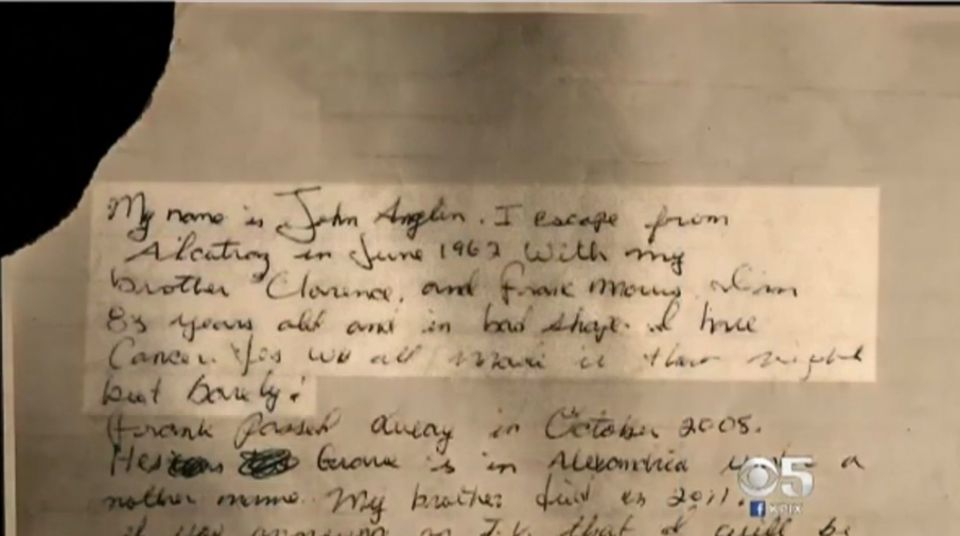 My name is John Anglin. I escape from
Alcatraz in June 1962 With my
brother Clarence, and Frank Morris. I'm
83 years old and in bad shape. I have
Cancer. Yes we all made it that night
but barely!
Frank passed away in October 2008.
His Grave is in Alexandria under a
nother name. My brother died in 2011.
T.V. that I will be
CBS 5
f KPIX